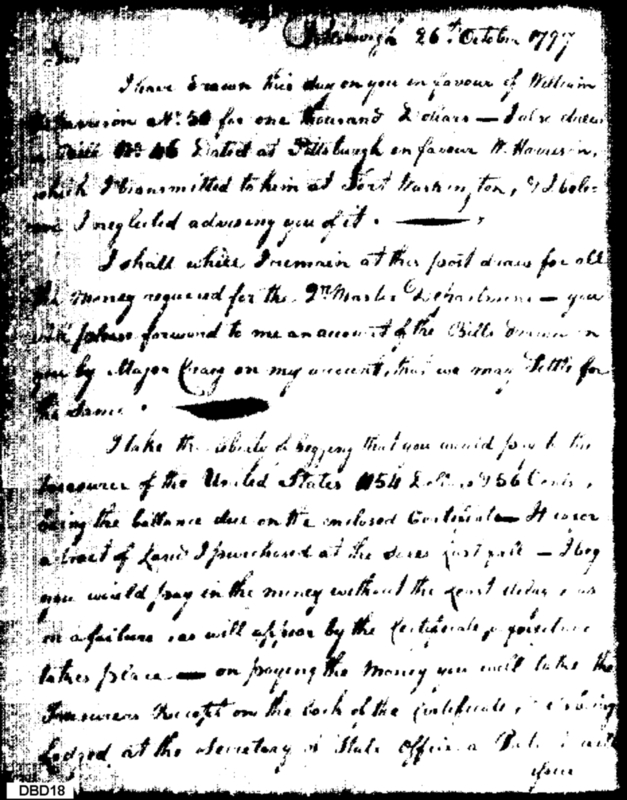 Pittsburgh 26th October 1797
Sir
I have drawn this day on you in favour of William
Harrison No. 50 for one thousand Dollars — I also drew
a Bill No 46 Dated at Pittsburgh in favour W. Harrison,
which I transmitted to him at Fort Washington, & I bele-
eve I neglected advising you of it.
I shall while I remain at this post draw for all
the Money required for the Qr Master Department — you
will please forward to me an account of the Bills drawn on
you by Major Craig on my account, that we may Settle for
the Same.
I take the liberty of begging that you would pay to the
Treasurer of the United States 1154 Dollars & 56 Cents,
being the ballance due on the enclosed Certificate — It is for
a tract of Land I purchased at the Sales Last fall — I beg
you would pay in the money without the Least delay, as
on a failure, as will appear by the Certificate, a forfeiture
takes place — on paying the Money you will take the
Treasurers Receipt on the back of the Certificate, being
Lodged at the Secretary of State Office a Patent will
issue
DBD18